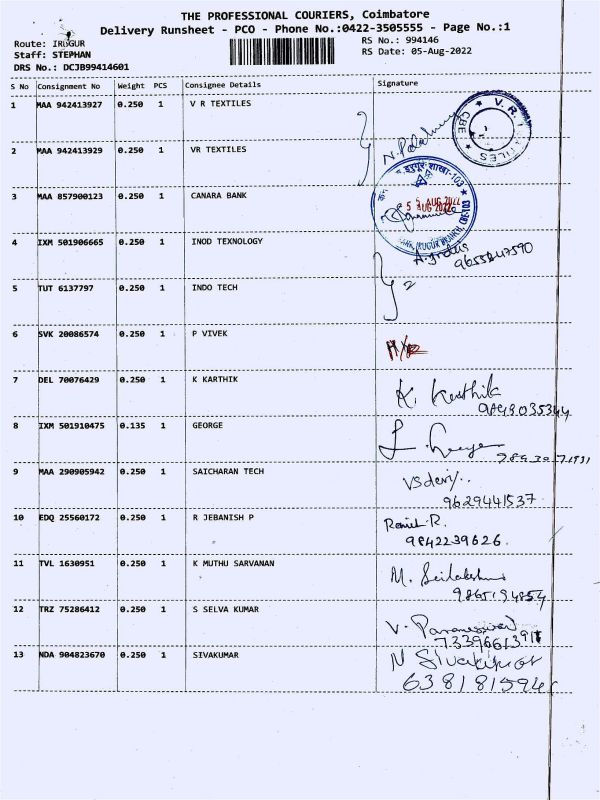 THE PROFESSIONAL COURIERS, Coimbatore
Delivery Runsheet - PCO - Phone No.:0422-3505555 - Page No.:1
Route: IRUGUR
RS No.: 994146
Staff: STEPHAN
RS Date: 05-Aug-2022
DRS No.: DCJB99414601
S No Consignment No Weight PCS Consignee Details Signature
1 MAA 942413927 0.250 1 V R TEXTILES
2 MAA 942413929 0.250 1 VR TEXTILES
3 MAA 857900123 0.250 1 CANARA BANK
5 AUG 2022
4 IXM 501906665 0.250 1 INOD TEXNOLOGY
5 TUT 6137797 0.250 1 INDO TECH
6 SVK 20086574 0.250 1 P VIVEK
7 DEL 70076429 0.250 1 K KARTHIK K. Karthik
8 IXM 501910475 0.135 1 GEORGE
9 MAA 290905942 0.250 1 SAICHARAN TECH
9629441537
10 EDQ 25560172 0.250 1 R JEBANISH P
9842239626
11 TVL 1630951 0.250 1 K MUTHU SARVANAN
12 TRZ 75286412 0.250 1 S SELVA KUMAR V. Parameswari
13 NDA 904823670 0.250 1 SIVAKUMAR N Sivakumar